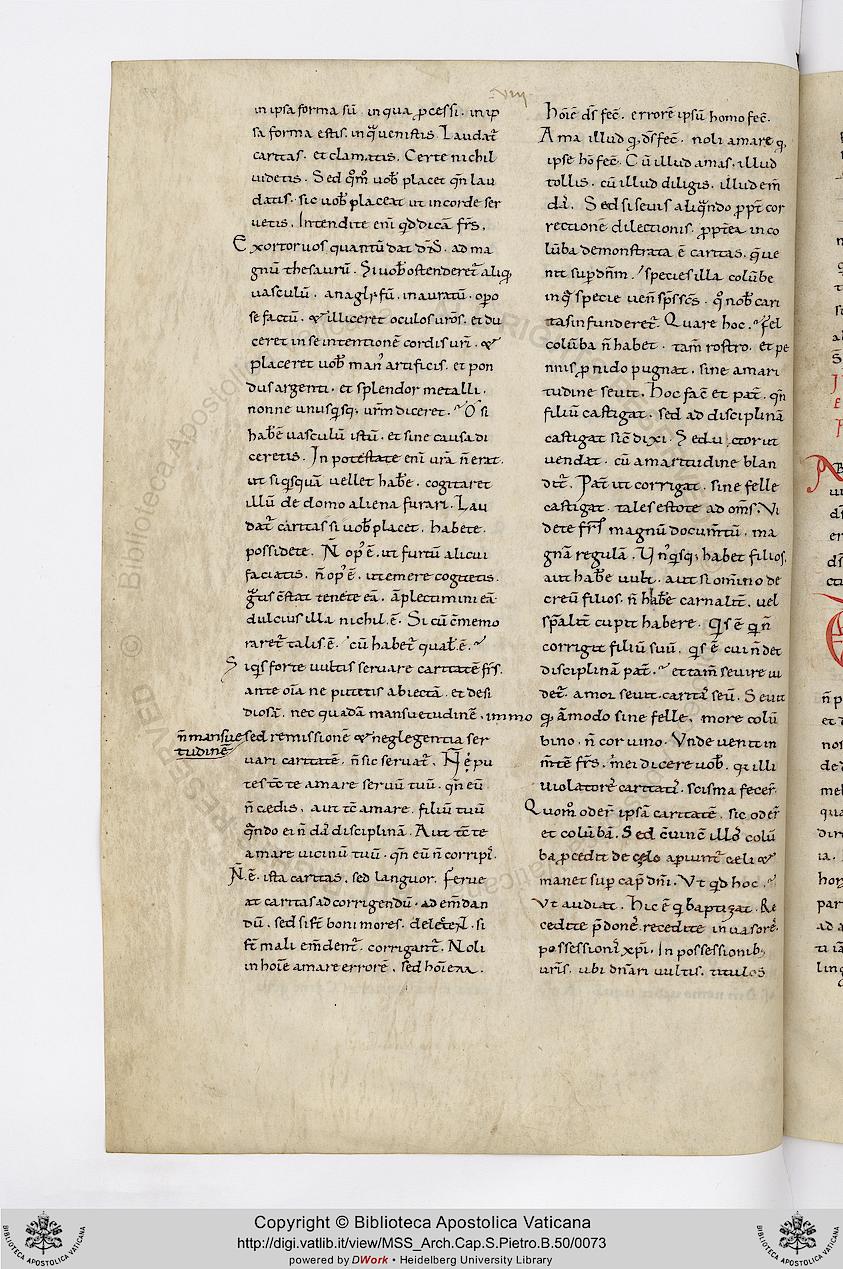 viii
in ipsa forma sū . in qua p̱cessi . in ip
sa forma estis . in q̄ venistis . Laudat᷑
caritas . et clamatis . Certe nichil
videtis . Sed qm̄ vob̄ placet qn̄ lau
datis . sic vob̄ placeat ut in corde ser
vetis . Intendite eni qd dicā fr̄s .
Exortor vos quantū dat dn̄s . ad ma
gnū thesaurū . Si vob̄ ostenderet᷑ aliq̣
vasculū . anaglifū . inauratū . op̱o
se factū . & illiceret oculos vr̄os . et du
ceret in se intentionē cordis vr̄i . &
placeret vob̄ man᷒ artificis . et pon
dus argenti . et splendor metalli .
nonne unusqsq; vr̄m diceret . O si
habē vasculū istū . et sine causa di
ceretis . In potestate eni vr̄a n̄ erat .
ut si qsquā vellet habē . cogitaret
illū de domo aliena furari . Lau
dat᷑ caritas si vob̄ placet . habete .
possidete . N̄ op᷒ ē . ut furtū alicui
faciatis . n̄ op᷒ ē . ut emere cogitetis .
gtis cstat tenete eā . āplectimini eā
dulcius illa nichil . ē . Si cū c̄memo
raret᷑ talis ē . cū habet᷑ qual ē .
Siqs forte vultis servare caritatē fr̄s .
ante oīa ne putetis abiectā . et desi
diosā . nec quadā mansuetudinē . immo
n̄ mansue
tudinē
sed remissionē & neglegentia ser
vari caritatē . n̄ sic servat᷑ . N̄ e pu
tes tc̄ te amare servū tuū . qn̄ eū
n̄ cędis . aut tc̄ amare . filiū tuū
q̄ndo ei n̄ da disciplinā . Aut tc̄ te
amare vicinū tuū . qn̄ eū n̄ corripi .
N̄ . ē . ista caritas . sed languor . ferve
at caritas ad corrigendū . ad em̄dan
dū . sed si st̄ boni mores . delectent . si
st̄ mali em̄dent᷑ . corrigant᷑ . Noli
in hoīe amare errorē . sed hoīem .
hoīē ds̄ fec̄ . errorē ipsū homo fec̄ .
Ama illud q̣ ds̄ fec̄ . noli amare q̣
ipse hō fec̄ . Cū illud amas . illud
tollis . cū illud diligis . illud em̄
da . Sed si sevis aliq̄ndo p̱pt̄ cor
rectionē dilectionis . p̱pt̄ea in co
lūba demonstrata ē caritas . que ve
nit sup̱ dn̄m . species illa colūbe
in q̄ specie ven̄ sp̄s sc̄s . q᷒ nob̄ cari
tas infunderet᷑ . Quare hoc . Fel
colūba n̄ habet . tam̄ rostro . et pe
nnis p̱ nido pugnat . sine amari
tudine sevit . hoc fac̄ et pat᷑ . qn̄
filiū castigat . sed ad disciplinā
castigat sic̄ dixi . Seductor ut
vendat . cū amaritudine blan
dit᷑ . Pat᷑ ut corrigat . sine felle
castigat . tales estote ad oms̄ . Vi
dete fr̄s magnū docum̄tū . ma
gnā regulā . Un᷒qsq; habet filios .
aut habē vult . aut si omnino de
crevit filios . n̄ habē carnalit̄ . vel
sp̄alit̄ cupit habere . Qs ē q n̄
corrigit filiū suū . qs ē cui n̄ det
disciplinā pat᷑ . et tam̄ sevire vi
det᷑ . amor sevit . caritas sev̄ . Sevit
q̣ āmodo sine felle . more colū
bino . n̄ corvino . Unde venit in
m̄tē fr̄s . m̄ei dicere vob̄ . q illi
violatores caritatis . scisma fecer̄ .
Quom̄ oder̄ ipsā caritatē . sic oder̄
et colūbā . Sed c̄vincē illos colū
ba . p̱cedit de cęlo ap̱iunt᷑ celi &
manet sup̱ cap̱ dn̄i . Ut qd hoc .
Ut audiat . hic ē q baptizat . Re
cedite p̄dones . recedite invasores .
possessionis xp̄i . In possessionib;
vr̄is . ubi dn̄ari vultis . titulos
Copyright © Biblioteca Apostolica Vaticana
http://digi.vatlib.it/view/MSS_Arch.Cap.S.Pietro.B.50/0073
powered by DWork • Heidelberg University Library